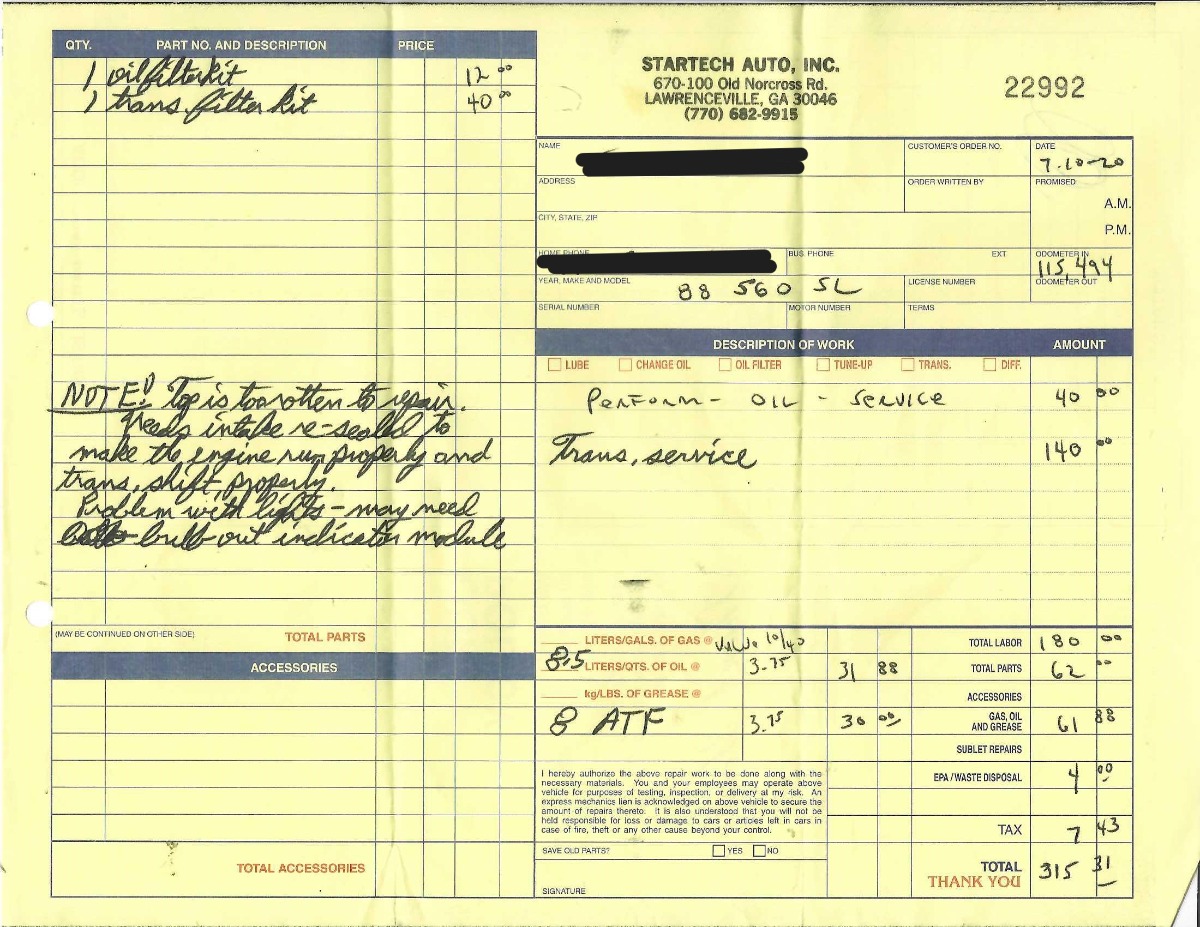 QTY. PART NO. AND DESCRIPTION PRICE
1 oil filter kit 12 00
1 trans. filter kit 40 00
STARTECH AUTO, INC.
670-100 Old Norcross Rd.
LAWRENCEVILLE, GA 30046
(770) 682-9915
22992
NAME
CUSTOMER'S ORDER NO.
DATE
7-10-20
ADDRESS
ORDER WRITTEN BY
PROMISED
A.M.
P.M.
CITY, STATE, ZIP
HOME PHONE
BUS. PHONE EXT
ODOMETER IN
115,494
YEAR, MAKE AND MODEL
88 560 SL
LICENSE NUMBER
ODOMETER OUT
SERIAL NUMBER
MOTOR NUMBER
TERMS
DESCRIPTION OF WORK AMOUNT
LUBE CHANGE OIL OIL FILTER TUNE-UP TRANS. DIFF.
PERFORM - OIL - SERVICE 40 00
Trans, service 140 00
NOTE! Top is too rotten to repair.
Needs intake re-sealed to
make the engine run properly and
trans, shift, properly.
Problem with lights - may need
bulb out indicator module
(MAY BE CONTINUED ON OTHER SIDE) TOTAL PARTS
ACCESSORIES
TOTAL ACCESSORIES
LITERS/GALS. OF GAS @ 10/40
8.5 LITERS/QTS. OF OIL @ 3.75 31 88
kg/LBS. OF GREASE @
8 ATF 3.75 30 00
TOTAL LABOR 180 00
TOTAL PARTS 62 00
ACCESSORIES
GAS, OIL AND GREASE 61 88
SUBLET REPAIRS
EPA / WASTE DISPOSAL 4 00
TAX 7 43
TOTAL 315 31
THANK YOU
I hereby authorize the above repair work to be done along with the
necessary materials. You and your employees may operate above
vehicle for purposes of testing, inspection, or delivery at my risk. An
express mechanics lien is acknowledged on above vehicle to secure the
amount of repairs thereto. It is also understood that you will not be
held responsible for loss or damage to cars or articles left in cars in
case of fire, theft or any other cause beyond your control.
SAVE OLD PARTS? YES NO
SIGNATURE